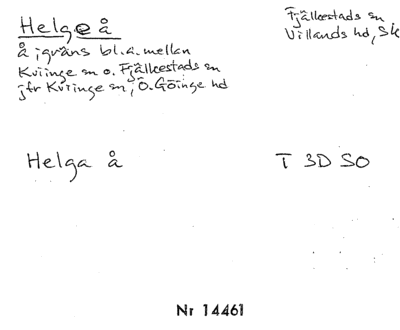 Helgeå
Fjälkestads sn
Villands hd, Sk
å i gräns bl.a. mellan
Kviinge sn o. Fjälkestads sn
jfr Kviinge sn, Ö. Göinge hd
Helga å
T 3D SO
Nr 14461